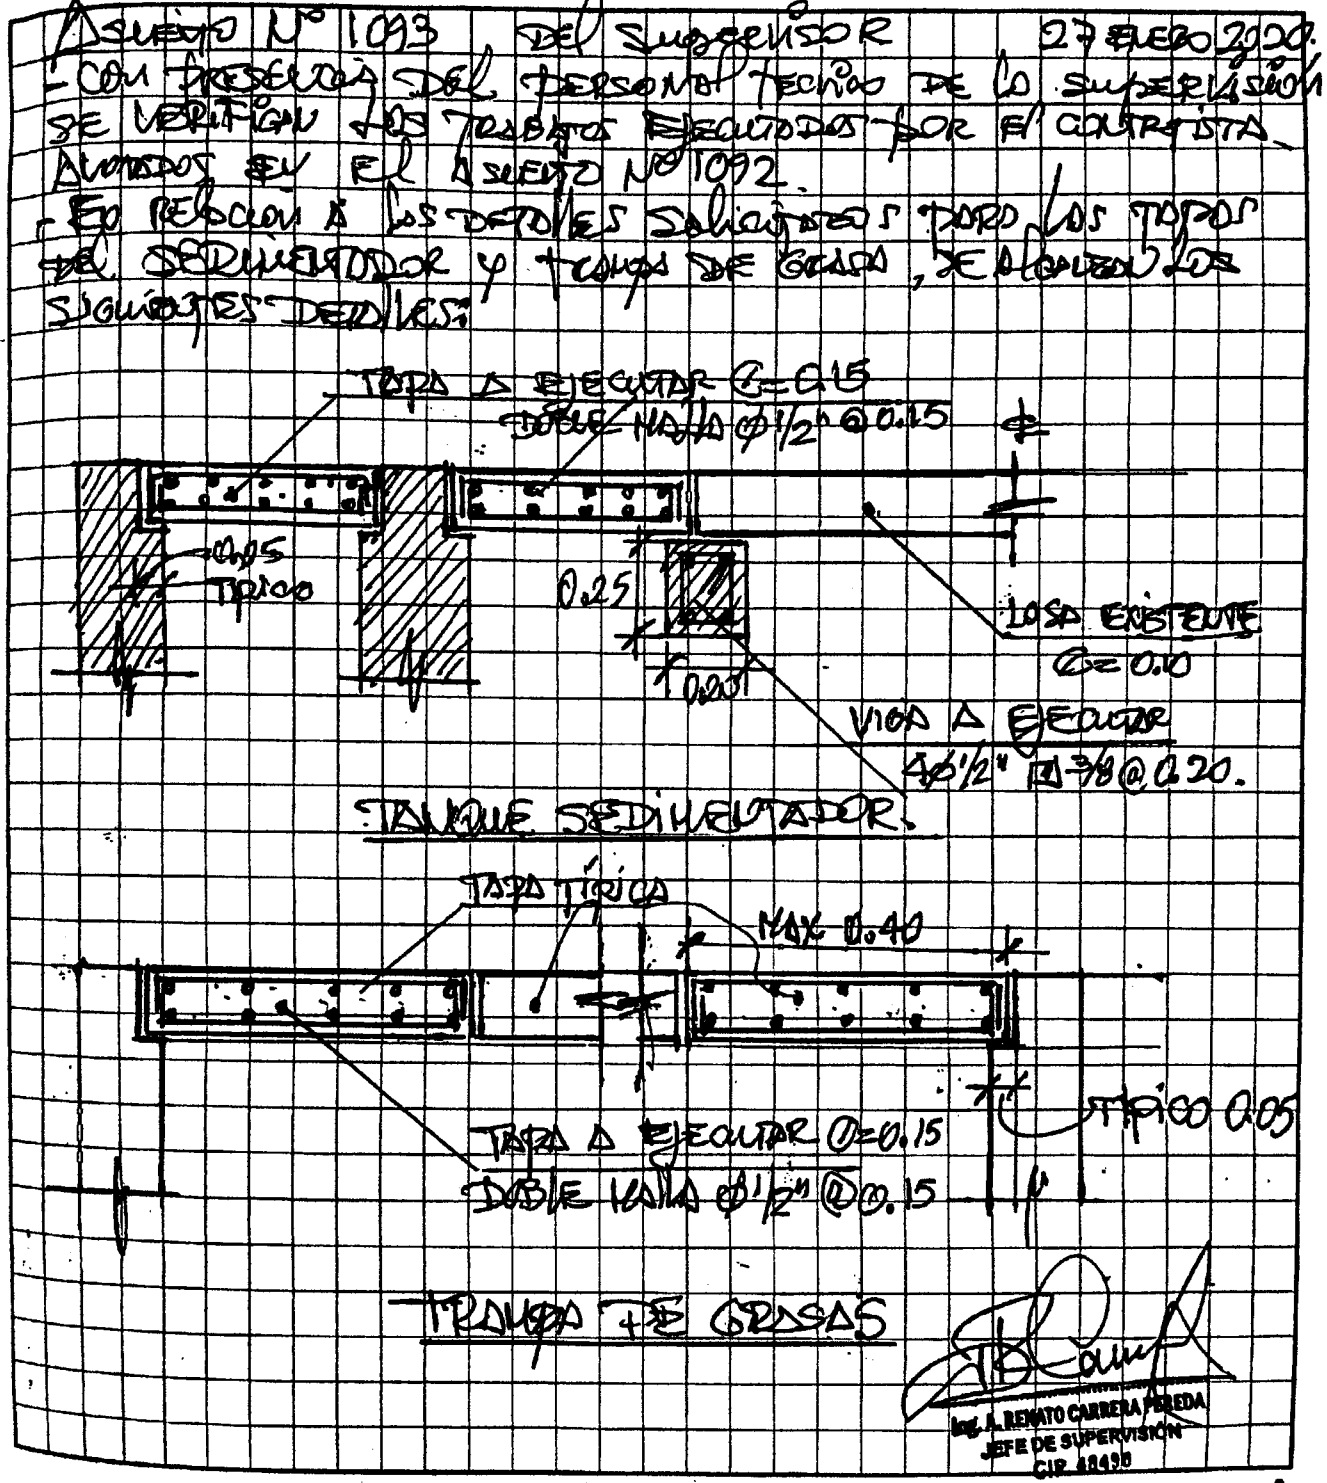 ASIENTO Nº 1093 DEL SUPERVISOR 27 ENERO 2020.
- CON PRESENCIA DEL PERSONAL TECNICO DE LA SUPERVISIÓN
SE VERIFICAN LOS TRABAJOS EJECUTADOS POR EL CONTRATISTA
ANOTADOS EN EL ASIENTO Nº 1092.
- EN RELACION A LOS DETALLES SOLICITADOS PARA LAS TAPAS
DEL SEDIMENTADOR Y TRAMPA DE GRASA, SE ALCANZAN LOS
SIGUIENTES DETALLES:
TAPA A EJECUTAR e=0.15
DOBLE MALLA Ø 1/2" @ 0.15
0.05
TIPICO
0.25
0.20
LOSA EXISTENTE
e=0.10
VIGA A EJECUTAR
4Ø1/2" 3/8 @ 0.20.
TANQUE SEDIMENTADOR.
TAPA TÍPICA
MAX 0.40
TIPICO 0.05
TAPA A EJECUTAR e=0.15
DOBLE MALLA Ø 1/2" @ 0.15
TRAMPA DE GRASAS
Ing. A. RENATO CARRERA PEREDA
JEFE DE SUPERVISIÓN
CIP. 48490